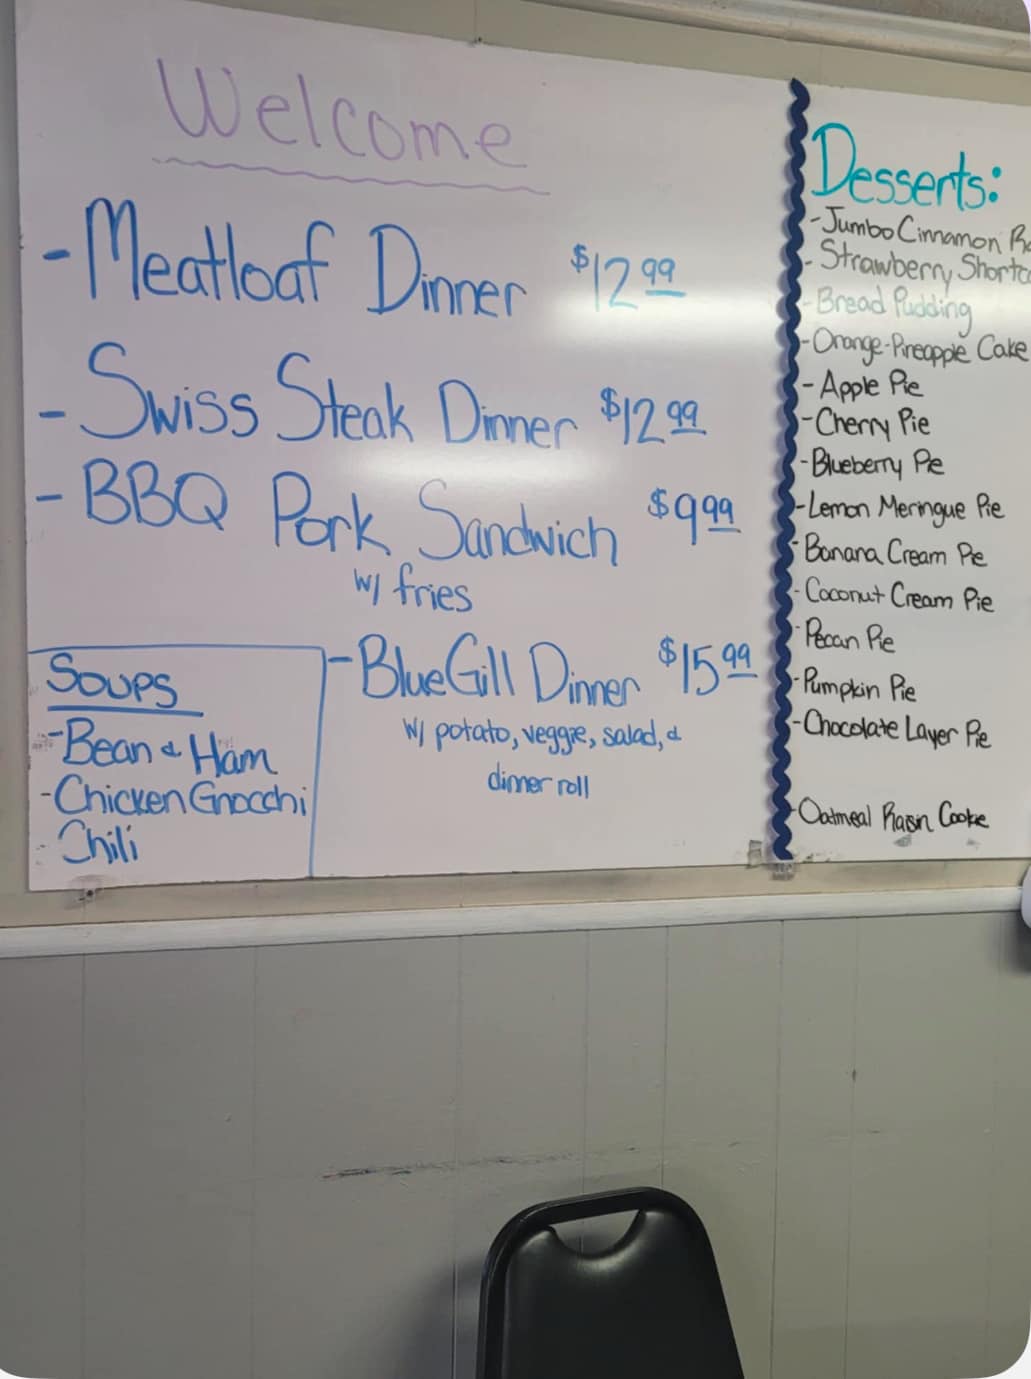 Welcome
- Meatloaf Dinner $12.99
- Swiss Steak Dinner $12.99
- BBQ Pork Sandwich $9.99
w/ fries
- BlueGill Dinner $15.99
w/ potato, veggie, salad, &
dinner roll
Soups
- Bean & Ham
- Chicken Gnocchi
- Chili
Desserts:
- Jumbo Cinnamon
- Strawberry
- Bread Pudding
- Orange-Pineapple Cake
- Apple Pie
- Cherry Pie
- Blueberry Pie
- Lemon Meringue Pie
- Banana Cream Pie
- Coconut Cream Pie
- Pecan Pie
- Pumpkin Pie
- Chocolate Layer Pie
- Oatmeal Raisin Cookie